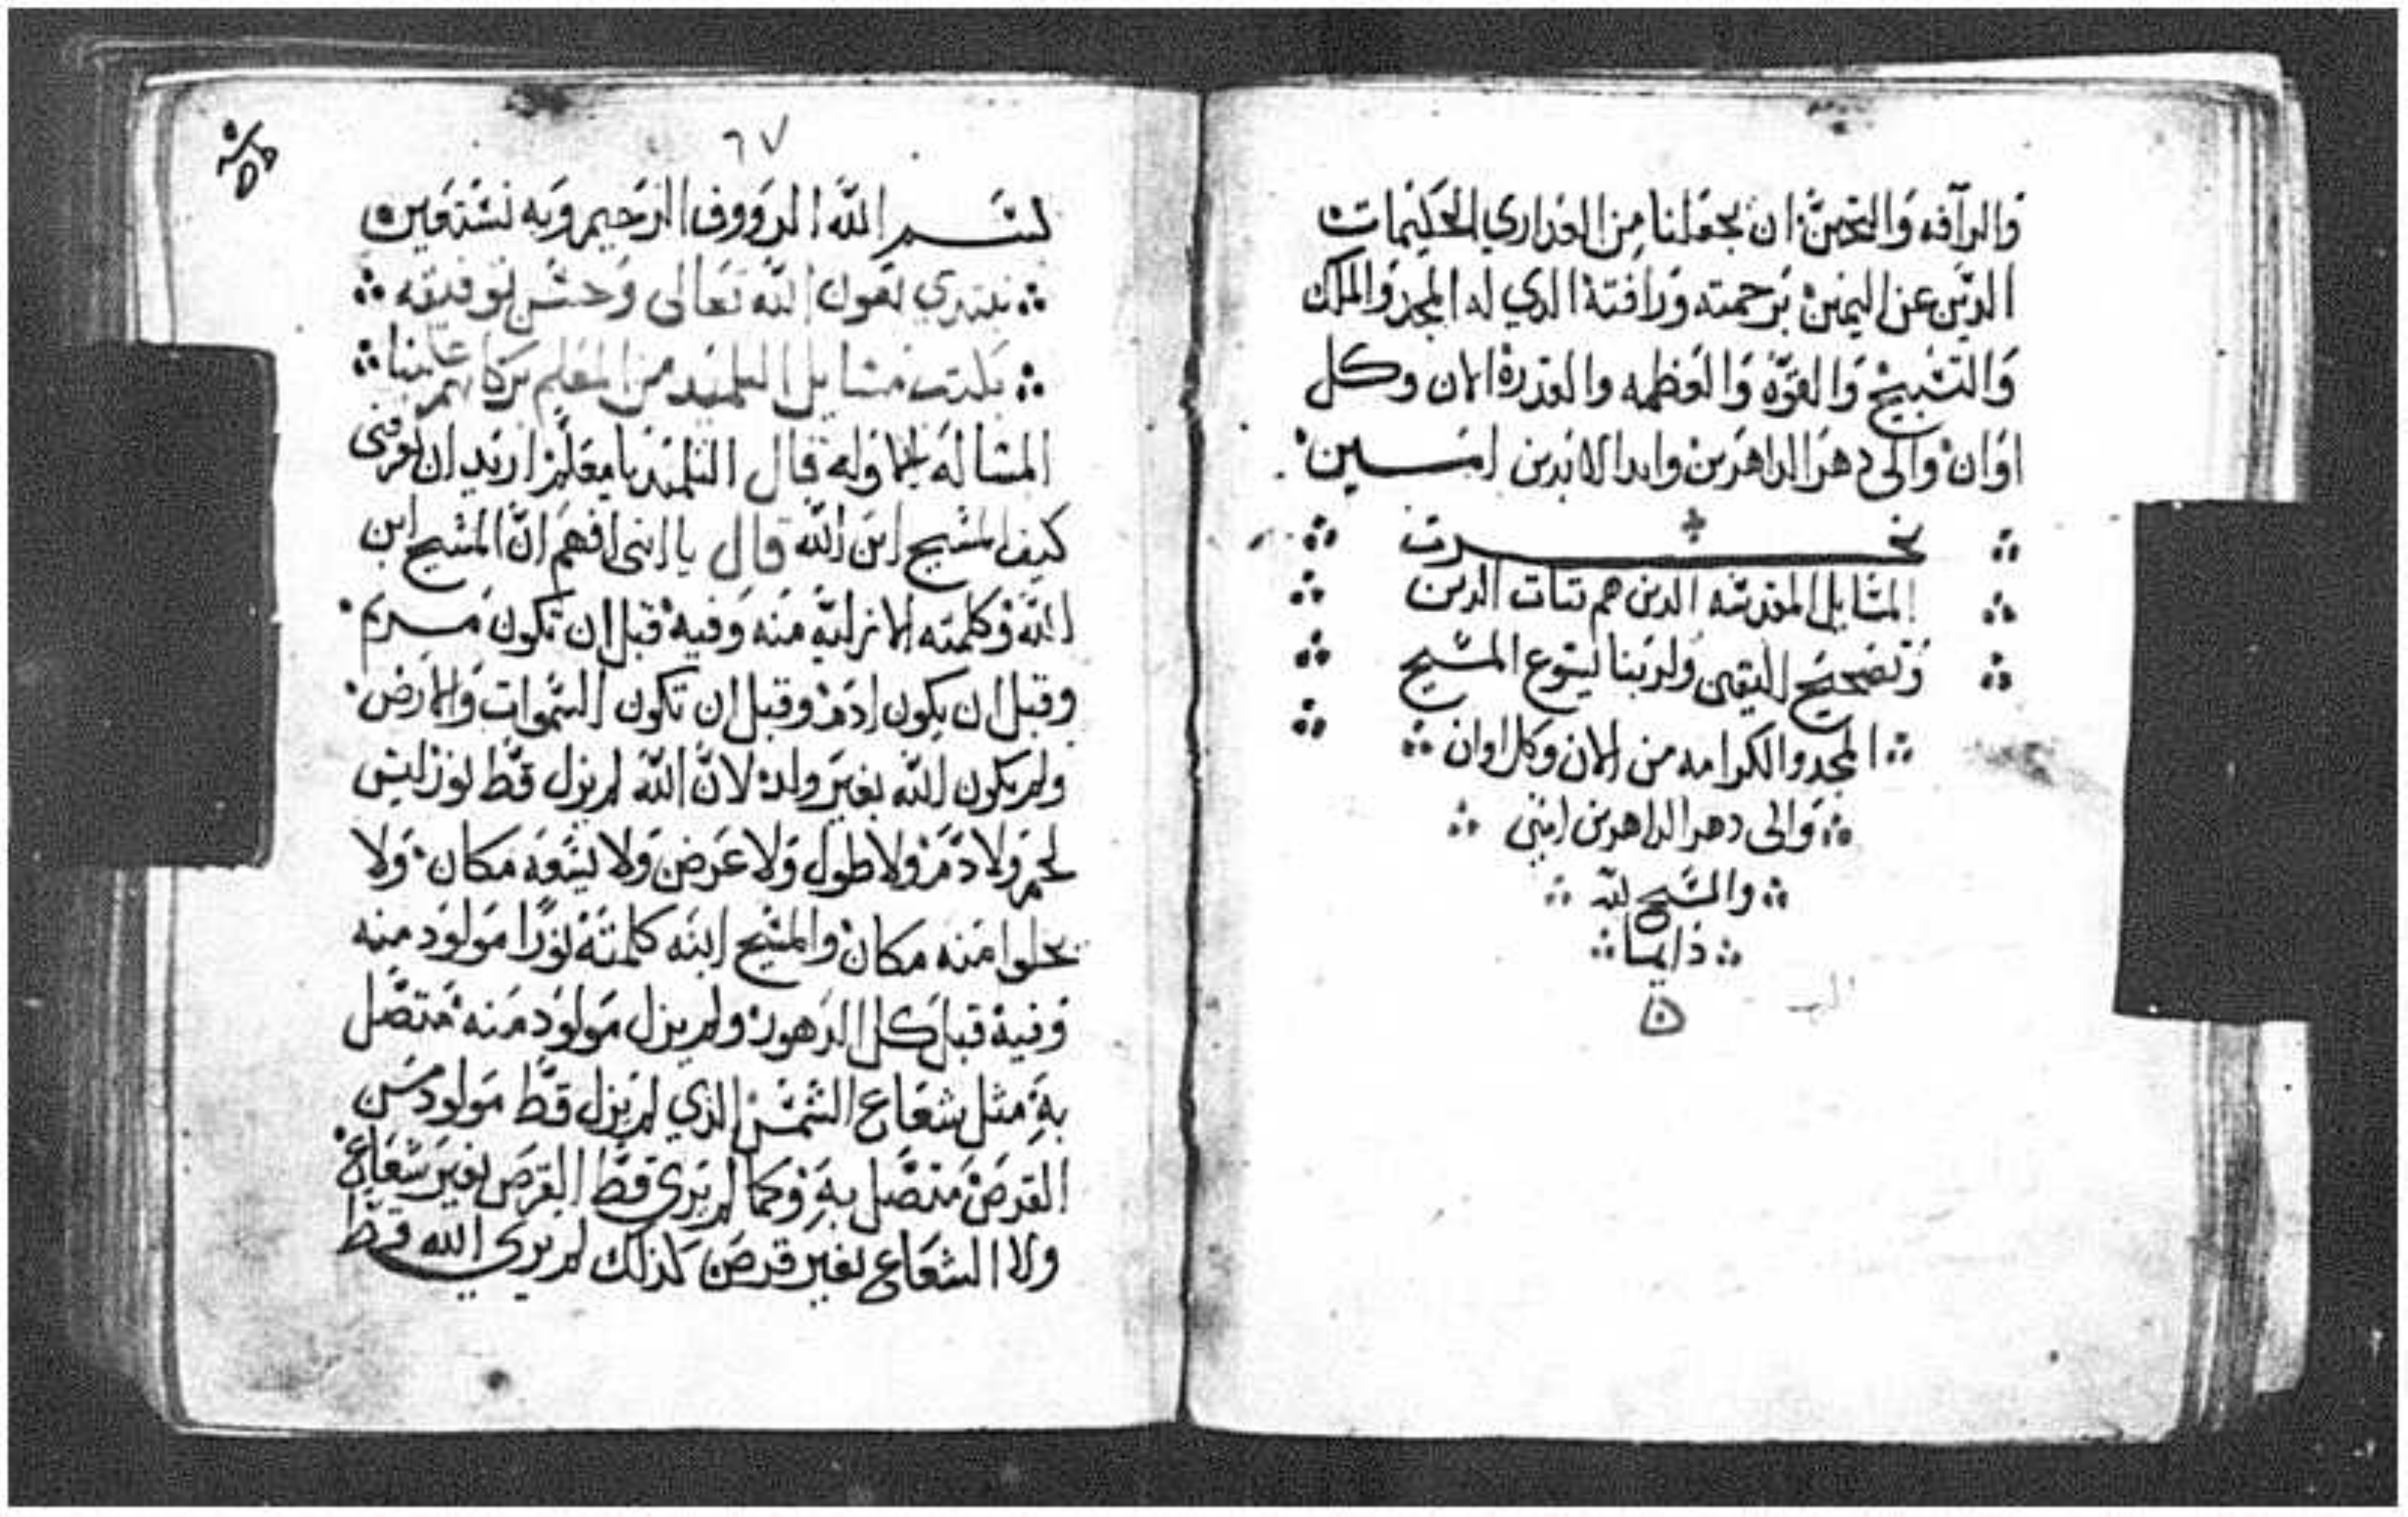 والرآفه والتحنن ان يجعلنا من العداري الحكيمات
الدين عن اليمين برحمته ورافته الدي له المجد والملك
والتسبيح والقوه والعظمه والقدرة الان وكل
اوان والى دهر الداهرين وابدا الابدين امــين
نجــــزت
المسايل المقدسه الدين هم تبات الدين
وتصحيح اليقين ولربنا يسوع المسيح
المجد والكرامه من الان وكل اوان
والى دهر الداهرين امين
والسبح لله
دايما
٦٧
بسـم الله الرووف الرحيم وبه نستعين
نبتدي بعون الله تعالى وحسن توفيقه
بكتب مسايل التلميد من المعلم بركاتهم علينا
المساله الاوله قال التلميد يا معلم اريد ان تعرفنى
كيف المسيح ابن الله قال يا ابنى افهم ان المسيح ابن
الله وكلمته الازلية منه وفيه قبل ان تكون مـريم
وقبل ان يكون ادم وقبل ان تكون السموات والارض
ولم يكون الله بغير ولد لان الله لم يزل قط نور ليس
لحم ولا دم ولا طول ولا عرض ولا يسعه مكان ولا
يخلوا منه مكان والمسيح ابنه كلمته نورا مولود منه
وفيه قبل كل الدهور ولم يزل مولود منه متصل
به مثل شعاع الشمس الذي لم يزل قط مولود من
القرص متصل به وكما لم يرى قط القرص بغير شعاع
ولا الشعاع بغير قرص كذلك لم يرى الله قط